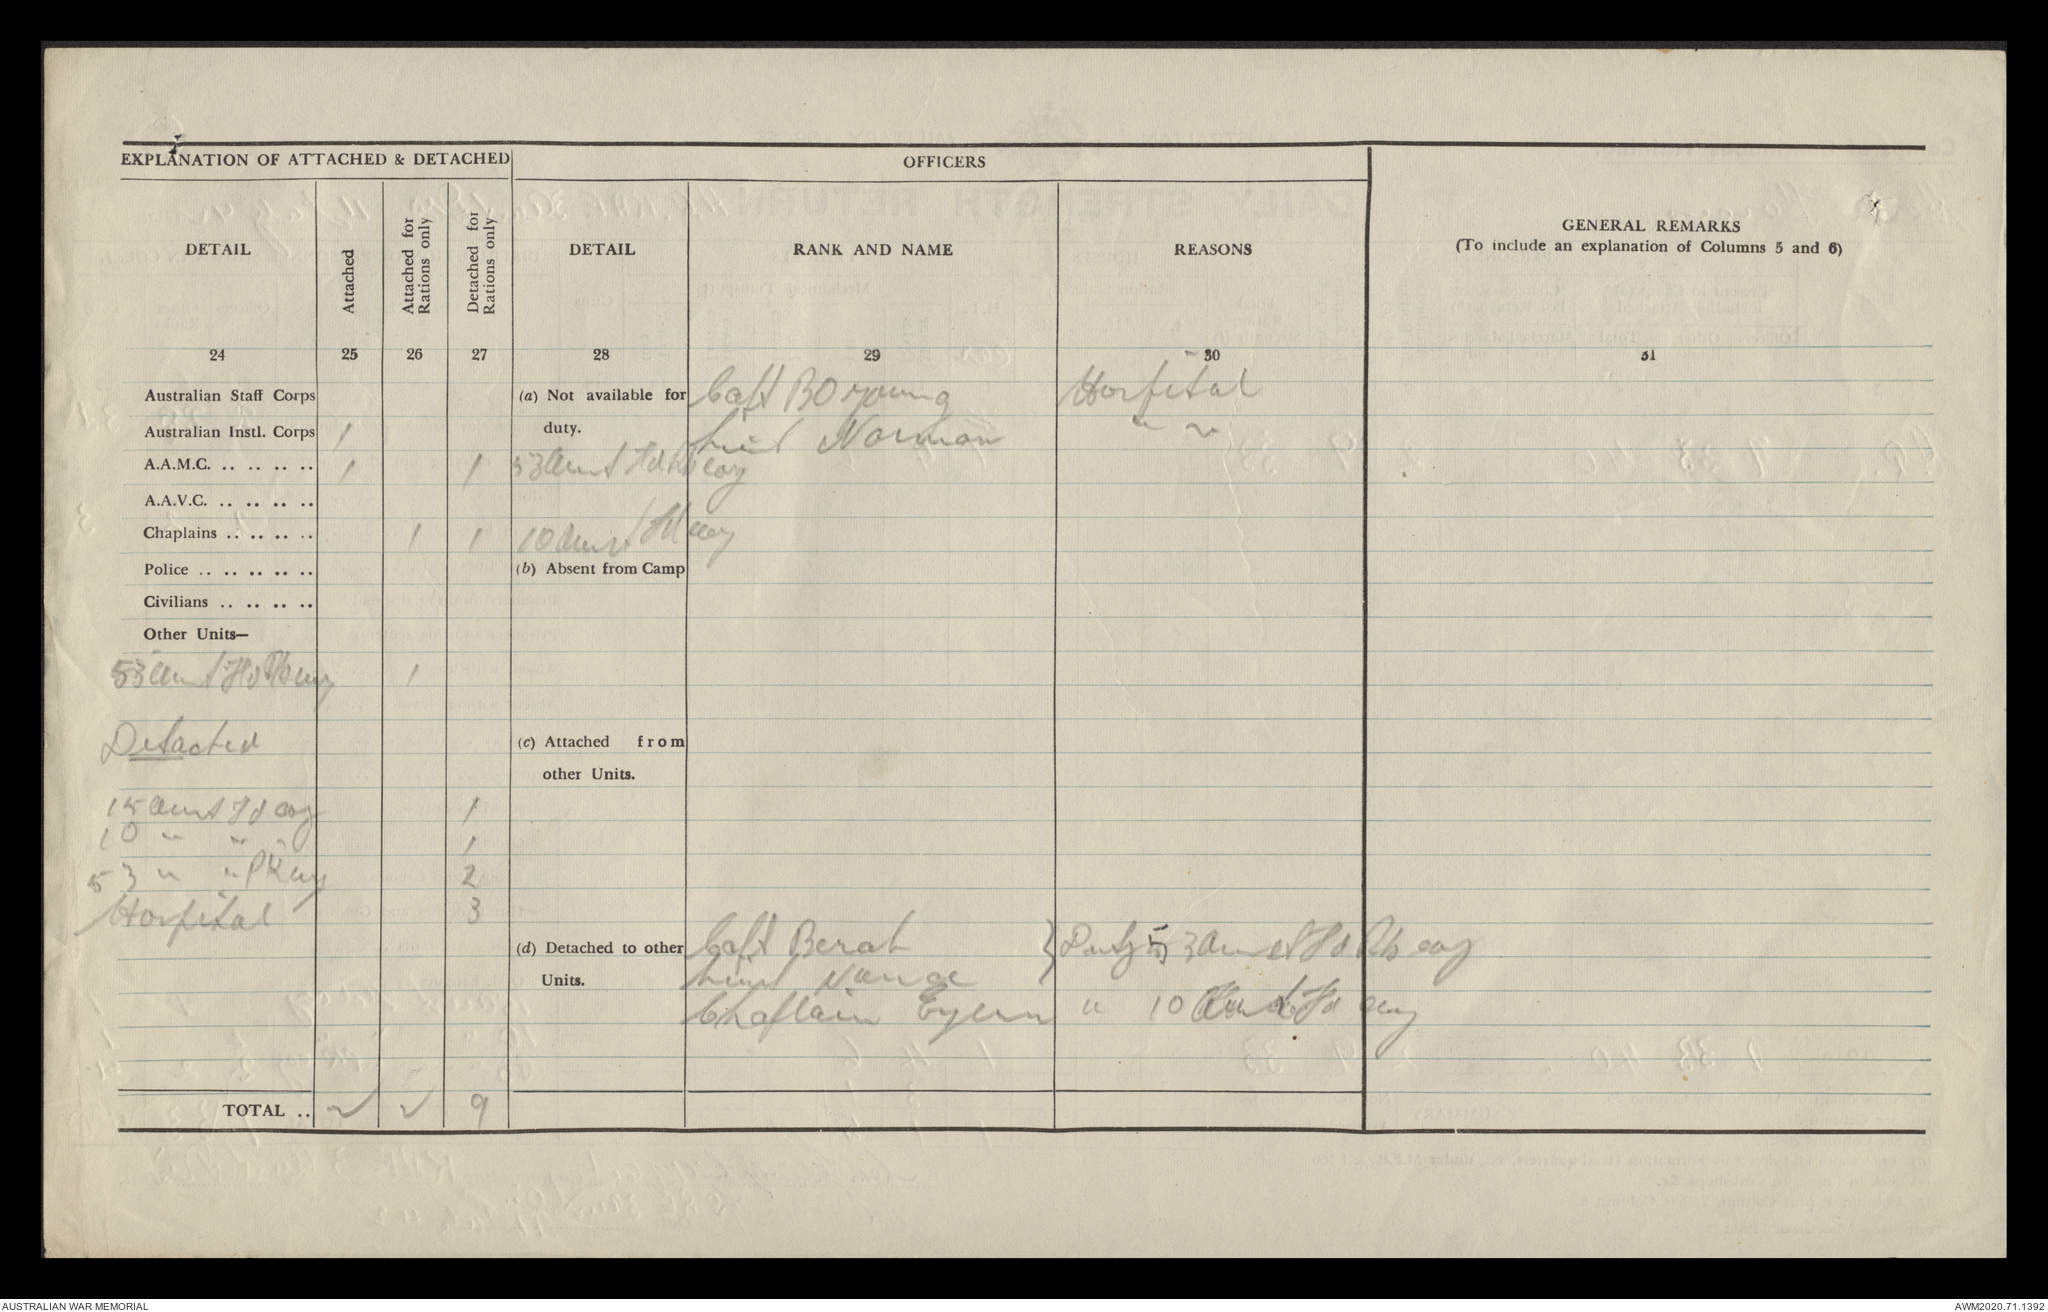 EXPLANATION OF ATTACHED & DETACHED
OFFICERS
GENERAL REMARKS
(To include an explanation of Columns 5 and 6)
DETAIL
Attached
Attached for Rations only
Detached for Rations only
DETAIL
RANK AND NAME
REASONS
24 25 26 27 28 29 30 31
Australian Staff Corps
(a) Not available for duty.
Capt BO Young Hospital
Australian Instl. Corps 1
Lieut Norman " "
A.A.M.C. .. .. .. .. 1 1 53 Aust Fd Pk coy
A.A.V.C. .. .. .. ..
Chaplains .. .. .. .. 1 1 10 Aust Fd coy
Police .. .. .. .. ..
(b) Absent from Camp
Civilians .. .. .. ..
Other Units—
53 Aust Fd Pk coy 1
Detached
(c) Attached from other Units.
15 Aust Fd coy 1
10 " " " 1
53 " " PK coy 2
Hospital 3
(d) Detached to other Units.
Capt } Duty 53 Aust Fd Pk coy
Lieut
Chaplain " 10 Aust Fd coy
TOTAL .. 2 2 9
AUSTRALIAN WAR MEMORIAL
AWM2020.71.1392